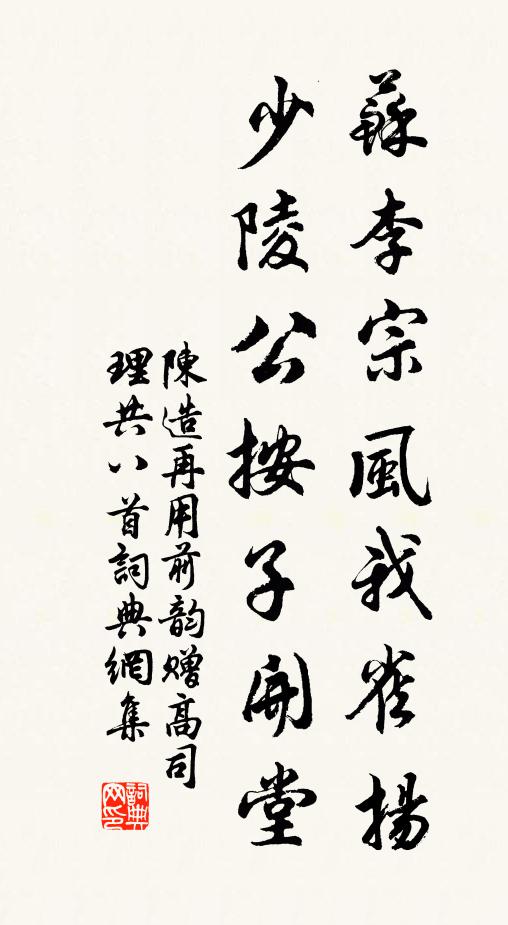 蘇李宗風我揚
少陵公按子開堂
陳造再用前韵贈高司
理共八首詞典網集
詞典网印